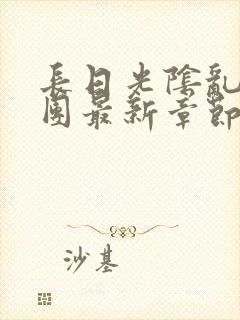 長日光陰亂
團最新章節
沙基